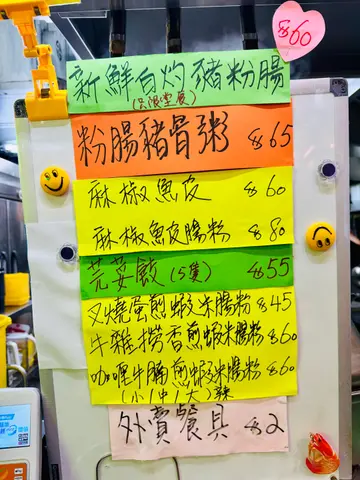 $60
新鮮白灼豬粉腸
(只限堂食)
粉腸豬骨粥 $65
麻椒魚皮 $60
麻椒魚皮腸粉 $80
芫荽餃(5隻) $55
叉燒蛋煎蝦米腸粉 $45
牛雜撈香煎蝦米腸粉 $60
咖喱牛腩煎蝦米腸粉 $60
(小/中/大)辣
外賣餐具 $2